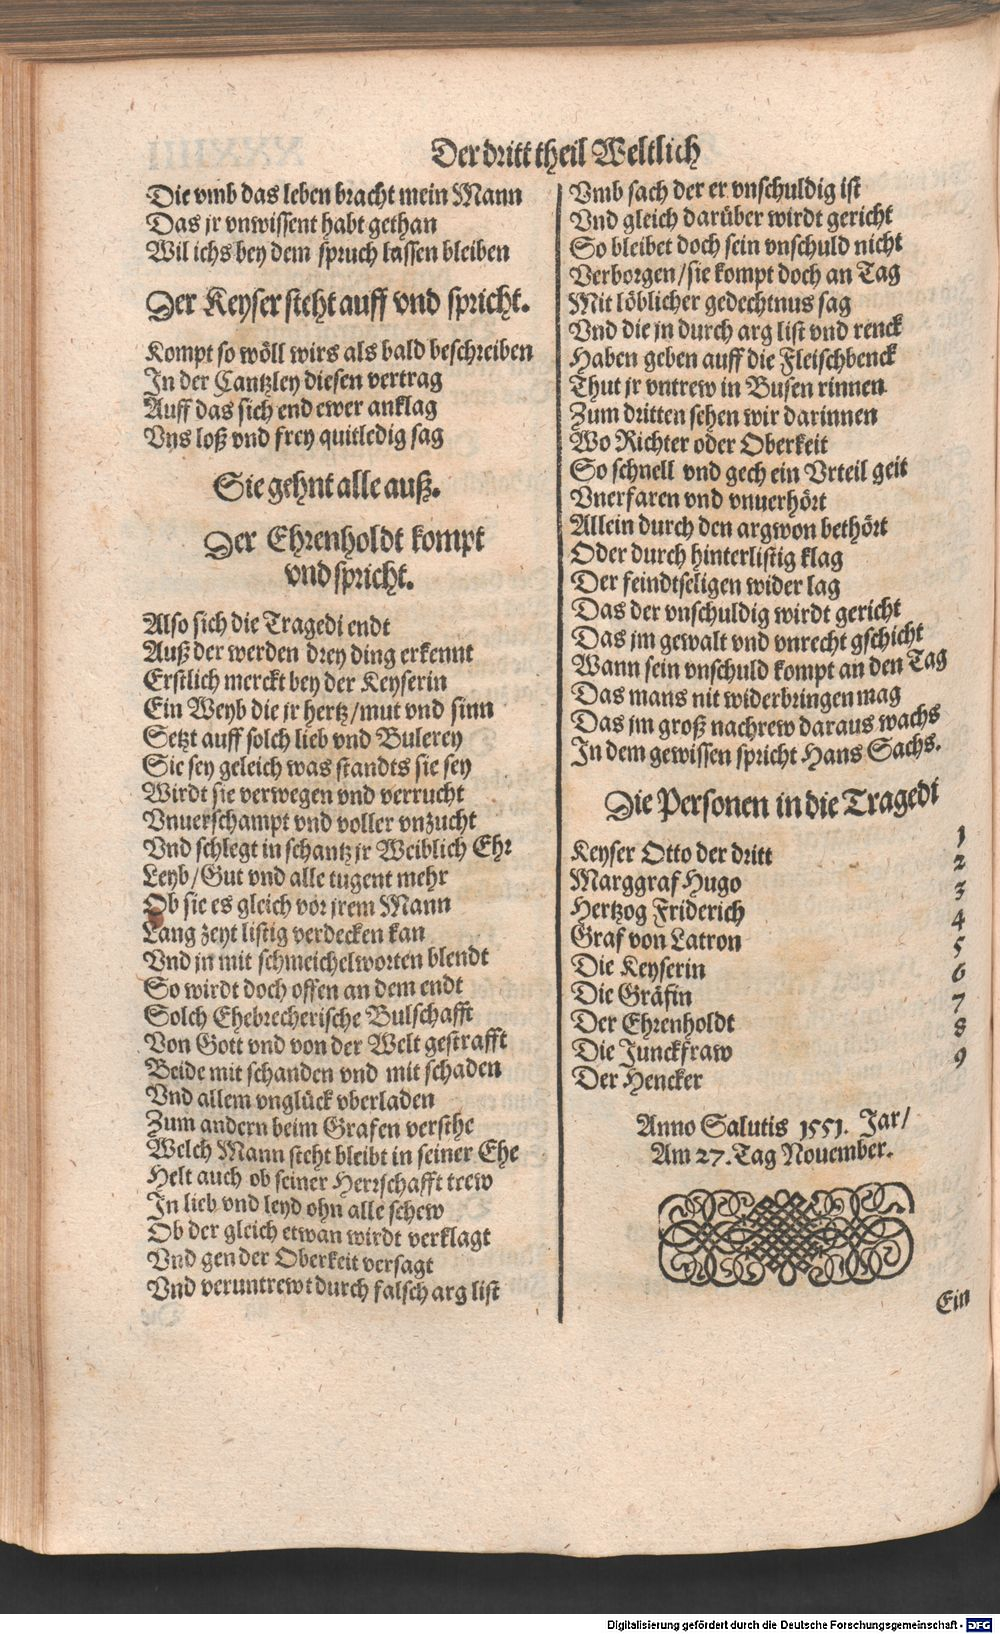 Der dritt theil Weltlich
Die vmb das leben bracht mein Mann
Das jr vnwissent habt gethan
Wil ichs bey dem spruch lassen bleiben
Der Keyser steht auff vnd spricht.
Kompt so wöll wirs als bald beschreiben
In der Cantzley diesen vertrag
Auff das sich end ewer anklag
Vns loß vnd frey quitledig sag
Sie gehnt alle auß.
Der Ehrenholdt kompt
vnd spricht.
Also sich die Tragedi endt
Auß der werden drey ding erkennt
Erstlich merckt bey der Keyserin
Ein Weyb die jr hertz/mut vnd sinn
Setzt auff solch lieb vnd Bulerey
Sie sey geleich was standts sie sey
Wirdt sie verwegen vnd verrucht
Vnuerschampt vnd voller vnzucht
Vnd schlegt in schantz jr Weiblich Ehr
Leyb/Gut vnd alle tugent mehr
Ob sie es gleich vor jrem Mann
Lang zeyt listig verdecken kan
Vnd jn mit schmeichelworten blendt
So wirdt doch offen an dem endt
Solch Ehebrecherische Bulschafft
Von Gott vnd von der Welt gestrafft
Beide mit schanden vnd mit schaden
Vnd allem vnglück vberladen
Zum andern beim Grafen versthe
Welch Mann steht bleibt in seiner Ehe
Helt auch ob seiner Herrschafft trew
In lieb vnd leyd ohn alle schew
Ob der gleich etwan wirdt verklagt
Vnd gen der Oberkeit versagt
Vnd veruntrewt durch falsch arg list
Vmb sach der er vnschuldig ist
Vnd gleich darüber wirdt gericht
So bleibet doch sein vnschuld nicht
Verborgen/sie kompt doch an Tag
Mit löblicher gedechtnus sag
Vnd die jn durch arg list vnd renck
Haben geben auff die Fleischbenck
Thut jr vntrew in Busen rinnen
Zum dritten sehen wir darinnen
Wo Richter oder Oberkeit
So schnell vnd gech ein Vrteil geit
Vnerfaren vnd vnuerhört
Allein durch den argwon bethört
Oder durch hinterlistig klag
Der feindtseligen wider lag
Das der vnschuldig wirdt gericht
Das jm gewalt vnd vnrecht gschicht
Wann sein vnschuld kompt an den Tag
Das mans nit widerbringen mag
Das jm groß nachrew daraus wachs
In dem gewissen spricht Hans Sachs.
Die Personen in die Tragedi
Keyser Otto der dritt 1
Marggraf Hugo 2
Hertzog Friderich 3
Graf von Latron 4
Die Keyserin 5
Die Gräfin 6
Der Ehrenholdt 7
Die Junckfraw 8
Der Hencker 9
Anno Salutis 1551. Jar/
Am 27. Tag Nouember.
Ein
Digitalisierung gefördert durch die Deutsche Forschungsgemeinschaft - DFG